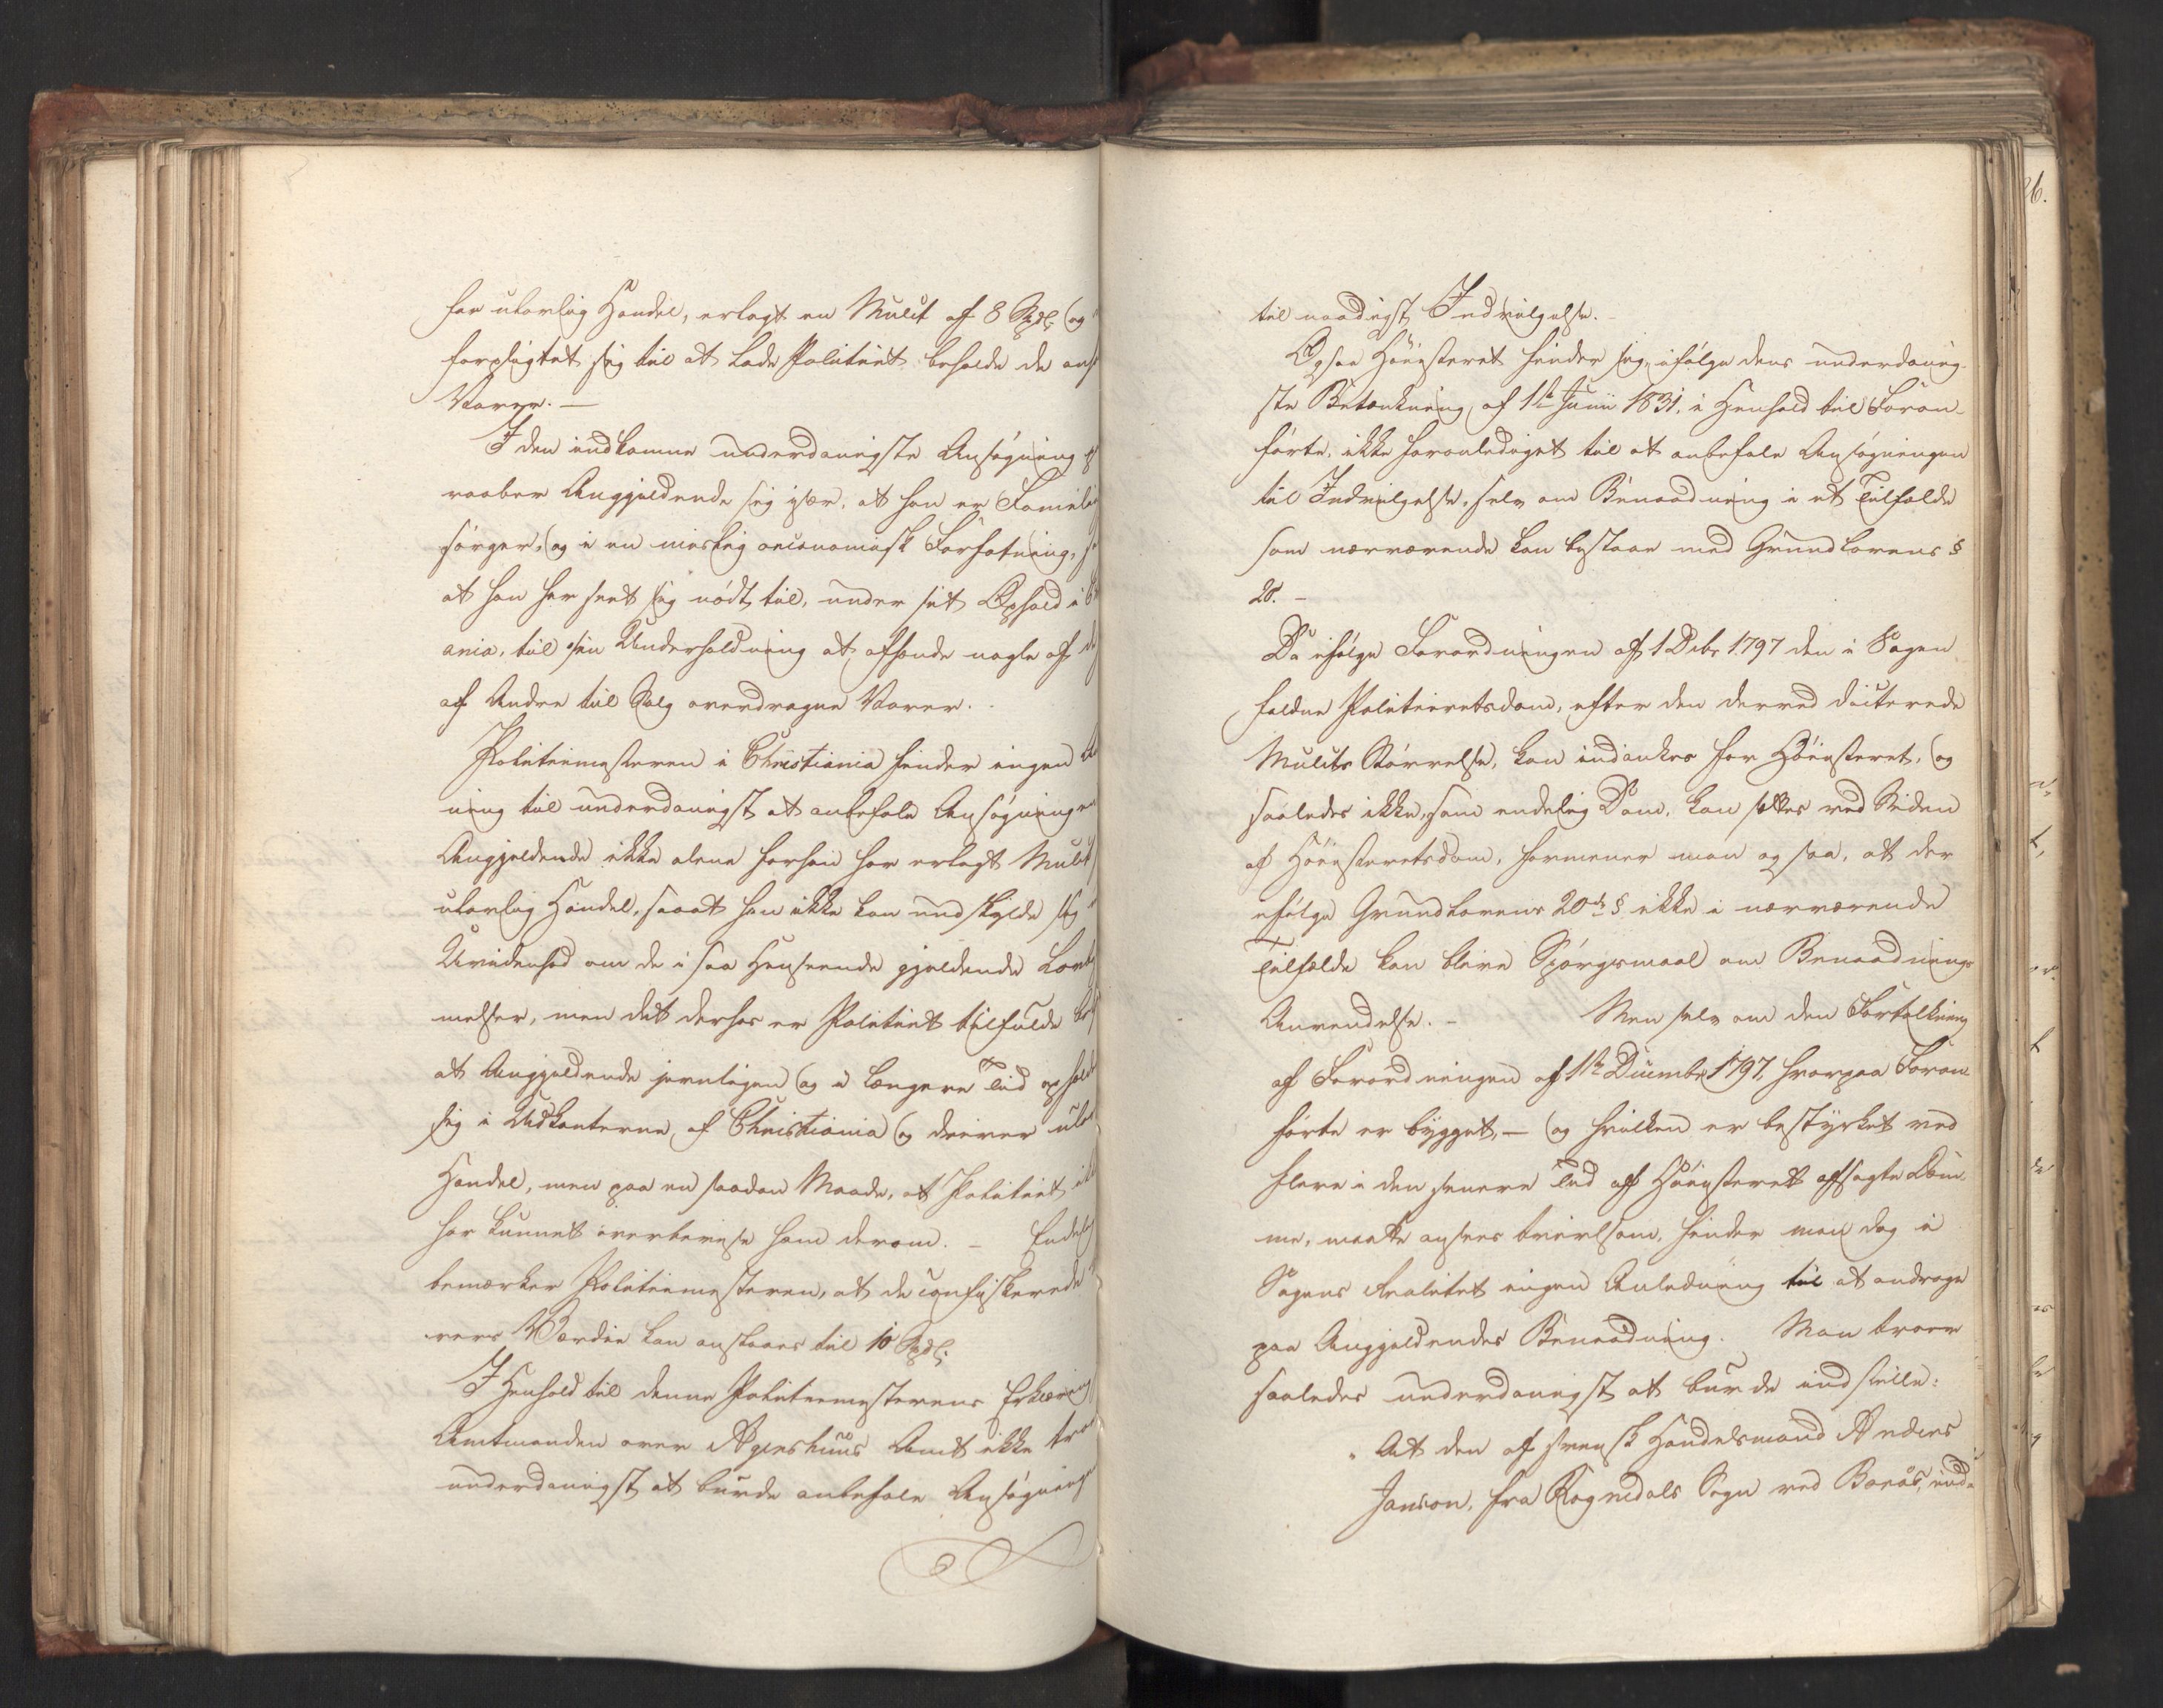 for ulovlig Handel, erlagt en Mulct af 8 Spdl. og
forpligtet sig til at lade Politiet beholde de anh
Varer. —
I den indkomne underdanigste Ansøgning
raaber Angjeldende sig især, at han er Familie
sørger, og i en mislig oeconomisk Forfatning,
at han har seet sig nødt til, under sit Ophold i
ania, til sin Underholdning at afhænde nogle af
af Andre til Salg overdragne Varer. -
Politiemesteren i Christiania finder ingen
ning til underdanigst at anbefale Ansøgningen
Angjeldende ikke alene forhen har erlagt Mulct
ulovlig Handel, saaat han ikke kan undskylde sig
Uvidenhed om de i saa Henseende gjeldende Lovbe
melser, men det derhos er Politiet tilfulde
at Angjeldende jevnligen og i længere Tid ophold
sig i Udkanterne af Christiania og driver ulov
Handel, men paa en saadan Maade, at Politiet
har kunnet overbevise ham derom. — Endelig
bemærker Politiemesteren, at de confiskerede
rers Værdie kan anslaaes til 10 Spdl.
I Henhold til denne Politiemesterens Erklæring
Amtmanden over Agershuus Amt ikke troe
underdanigst at burde anbefale Ansøgningen
til naadigst Indvilgelse. -
Ogsaa Høiesteret finder sig, ifølge dens underdanig-
ste Betænkning af 1ste Junii 1831, i Henhold til Foran-
førte, ikke foranlediget til at anbefale Ansøgningen
til Indvilgelse, selv om Benaadning i et Tilfælde
som nærværende kan bestaae med Grundlovens §
20. —
Da ifølge Forordningen af 1 Decbr 1797 den i Sagen
faldne Politieretsdom, efter den derved dicterede
Mulcts Størrelse, kan indankes for Høiesteret, og
saaledes ikke, som endelig Dom, kan sættes ved Siden
af Høiesteretsdom, formener man ogsaa, at der
ifølge Grundlovens 20de § ikke i nærværende
Tilfælde kan blive Spørgsmaal om Benaadnings
Anvendelse. — Men selv om den Fortolkning
af Forordningen af 1ste Decembr 1797, hvorpaa Foran-
førte er bygget, — og hvilken er bestyrket ved
flere i den senere Tid af Høiesteret afsagte Dom-
me, maatte ansees tvivlsom, finder man dog i
Sagens Realitet ingen Anledning til at andrage
paa Angjeldendes Benaadning. Man troer
saaledes underdanigst at burde indstille:
"At den af svensk Handelsmand Anders
Janson, fra Rognedals Sogn ved Borås, ind-
26.